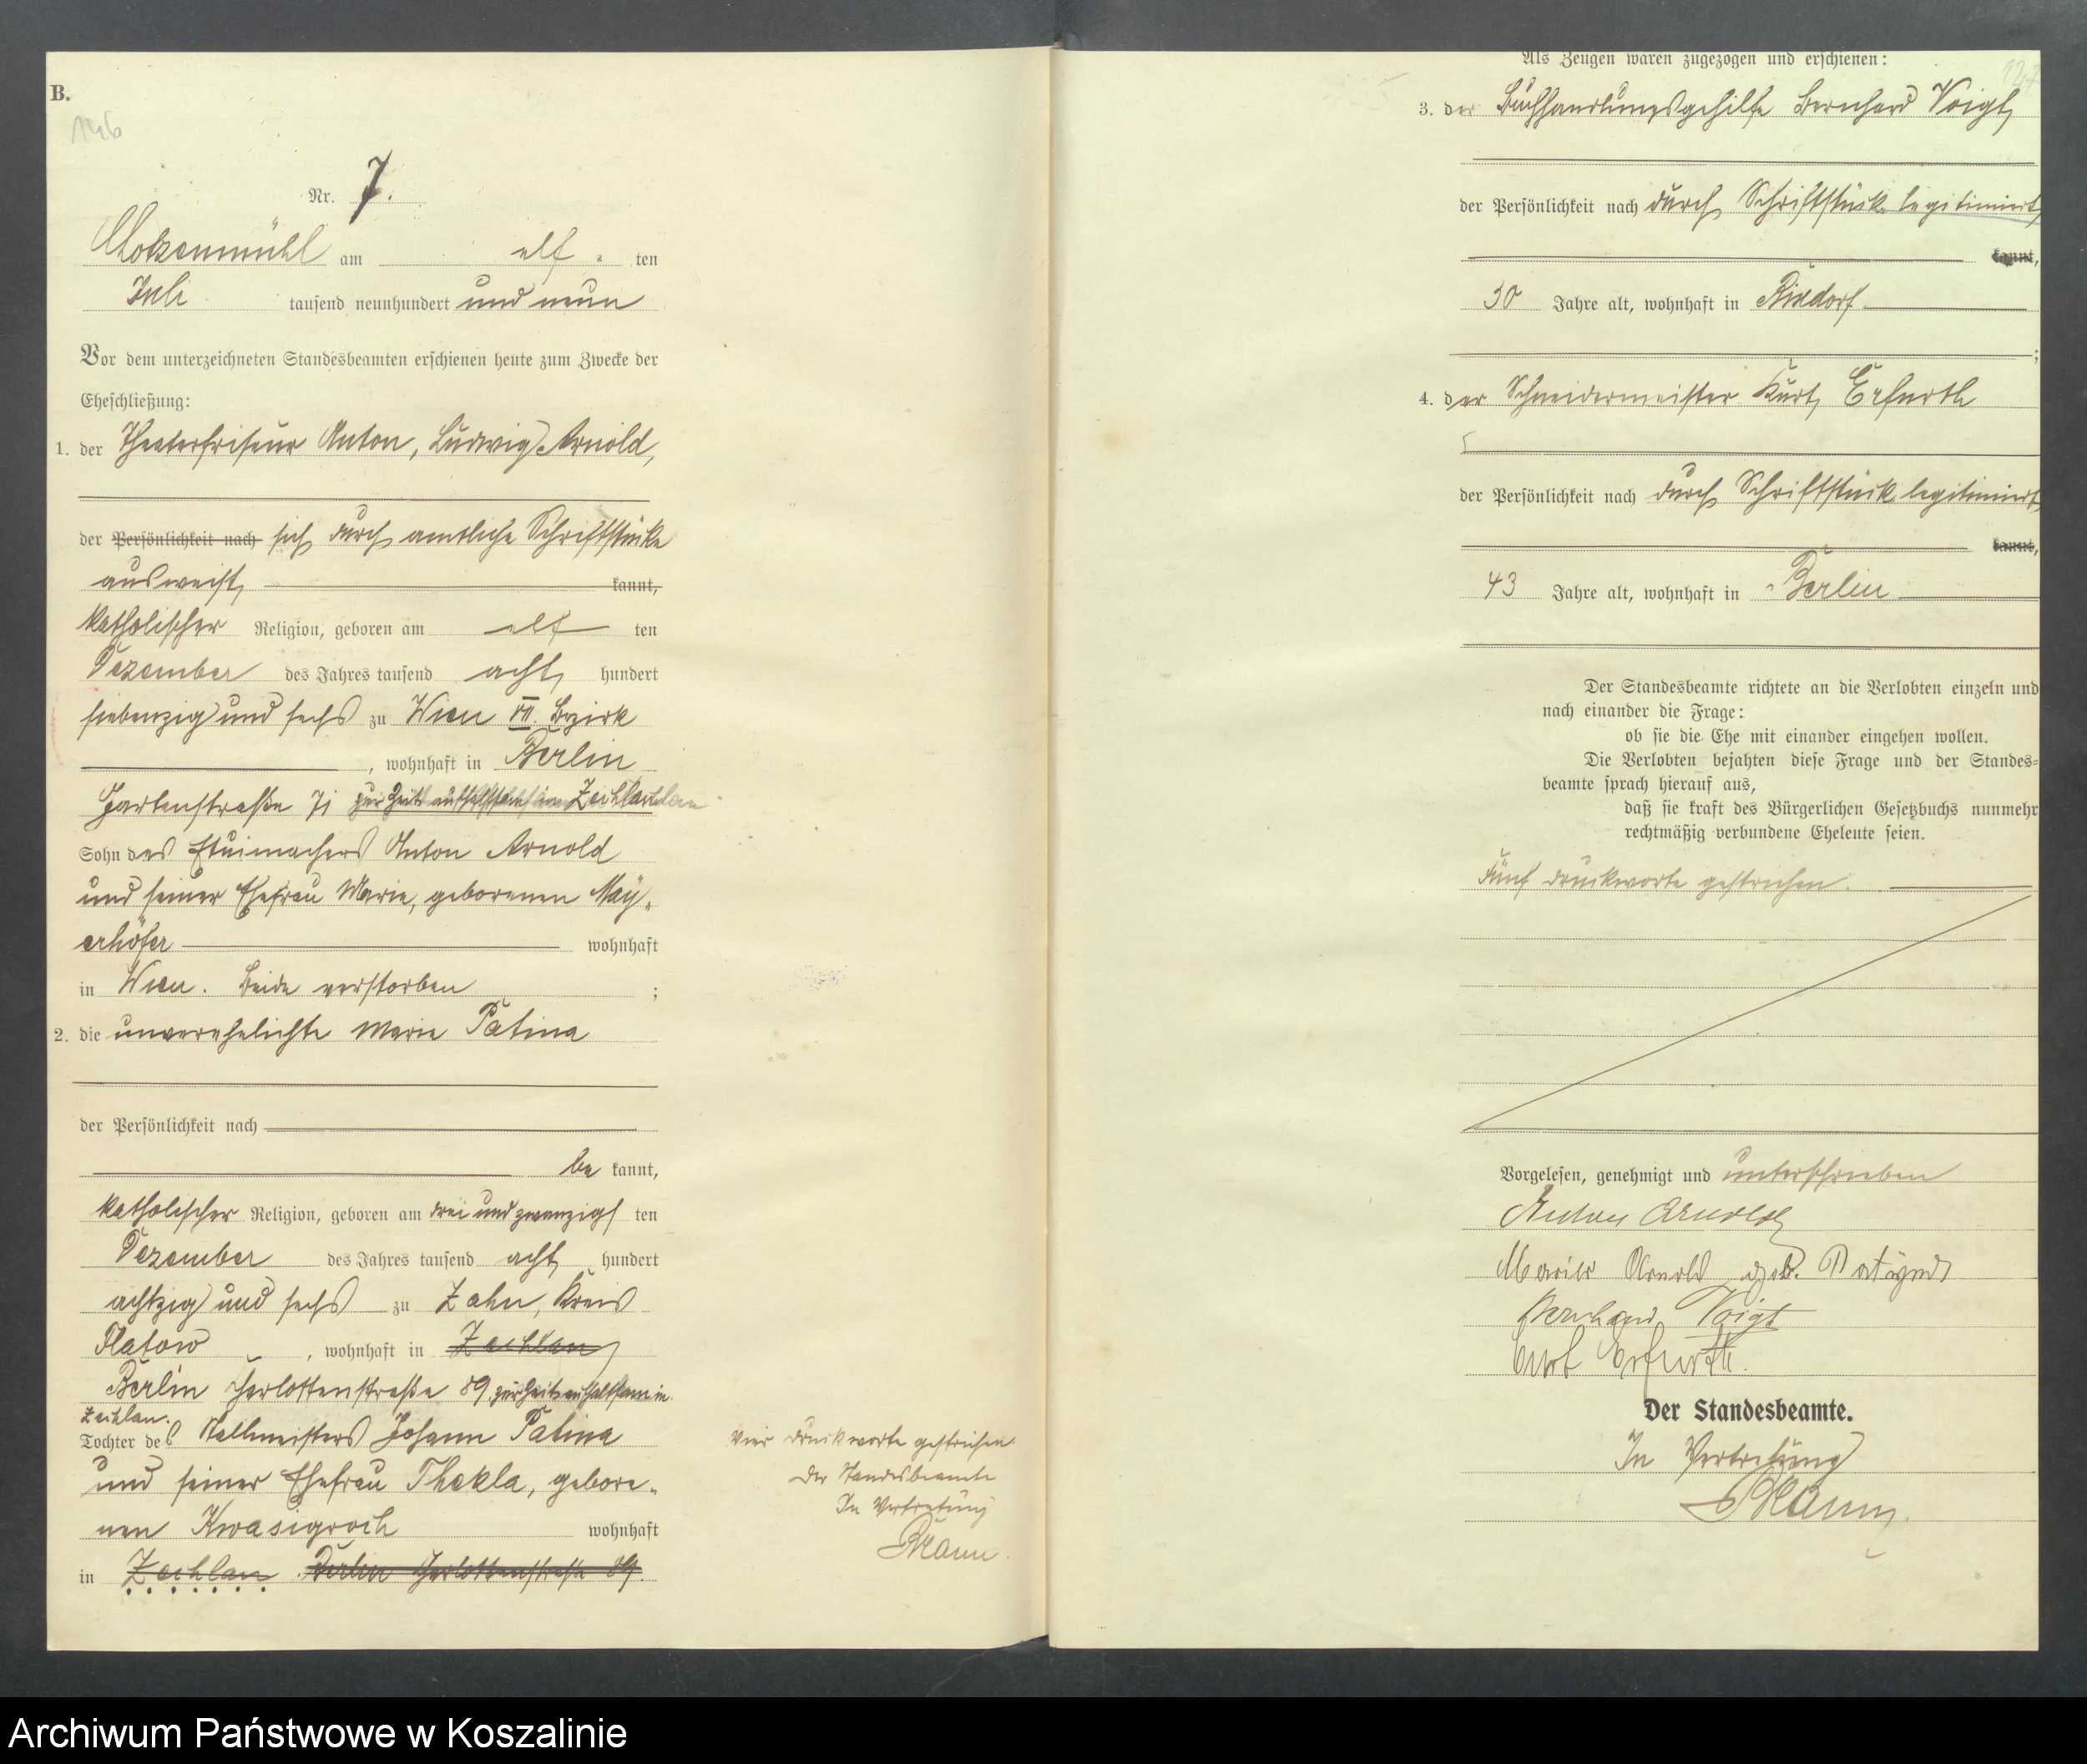 B.
146
Nr. 7.
Chotzenmühl am elf ten
Juli tausend neunhundert und neun
Vor dem unterzeichneten Standesbeamten erschienen heute zum Zwecke der
Eheschließung:
1. der Theaterfriseur Anton, Ludwig Arnold,
der Persönlichkeit nach sich durch amtliche Schriftstücke
ausweist, kannt,
katholischer Religion, geboren am elf ten
Dezember des Jahres tausend acht hundert
siebenzig und sechs zu Wien VII. Bezirk
, wohnhaft in Berlin
Gartenstraße 71 zur Zeit aufhaltsam in Zechlau
Sohn des Etuimachers Anton Arnold
und seiner Ehefrau Marie, geborenen May-
erhöfer wohnhaft
in Wien. Beide verstorben ;
2. die unverehelichte Marie Patina
der Persönlichkeit nach
be kannt,
katholischer Religion, geboren am drei und zwanzigs ten
Dezember des Jahres tausend acht hundert
achtzig und sechs zu Zahn, Kreis
Flatow , wohnhaft in Zechlau
Berlin Harlottenstraße 89, zur Zeit aufhaltsam in
Zechlau.
Tochter des Stellmeisters Johann Patina
und seiner Ehefrau Thekla, gebore-
nen Kwasigroch wohnhaft
in Zechlau Berlin Harlottenstraße 89.
Vier Druckworte gestrichen
Der Standesbeamte
In Vertretung
127
Als Zeugen waren zugezogen und erschienen:
3. der Buchhandlungsgehilfe Bernhard Voigt,
der Persönlichkeit nach durch Schriftstück legitimiert,
kannt,
30 Jahre alt, wohnhaft in Rixdorf
;
4. der Schneidermeister Kurt Erfurth
der Persönlichkeit nach durch Schriftstück legitimiert
kannt,
43 Jahre alt, wohnhaft in Berlin
Der Standesbeamte richtete an die Verlobten einzeln und
nach einander die Frage:
ob sie die Ehe mit einander eingehen wollen.
Die Verlobten bejahten diese Frage und der Standes-
beamte sprach hierauf aus,
daß sie kraft des Bürgerlichen Gesetzbuchs nunmehr
rechtmäßig verbundene Eheleute seien.
Fünf Druckworte gestrichen.
Vorgelesen, genehmigt und unterschrieben
Anton Arnold
Marie Arnold geb. Patyna
Bernhard Voigt
Curt Erfurth.
Der Standesbeamte.
In Vertretung
Archiwum Państwowe w Koszalinie